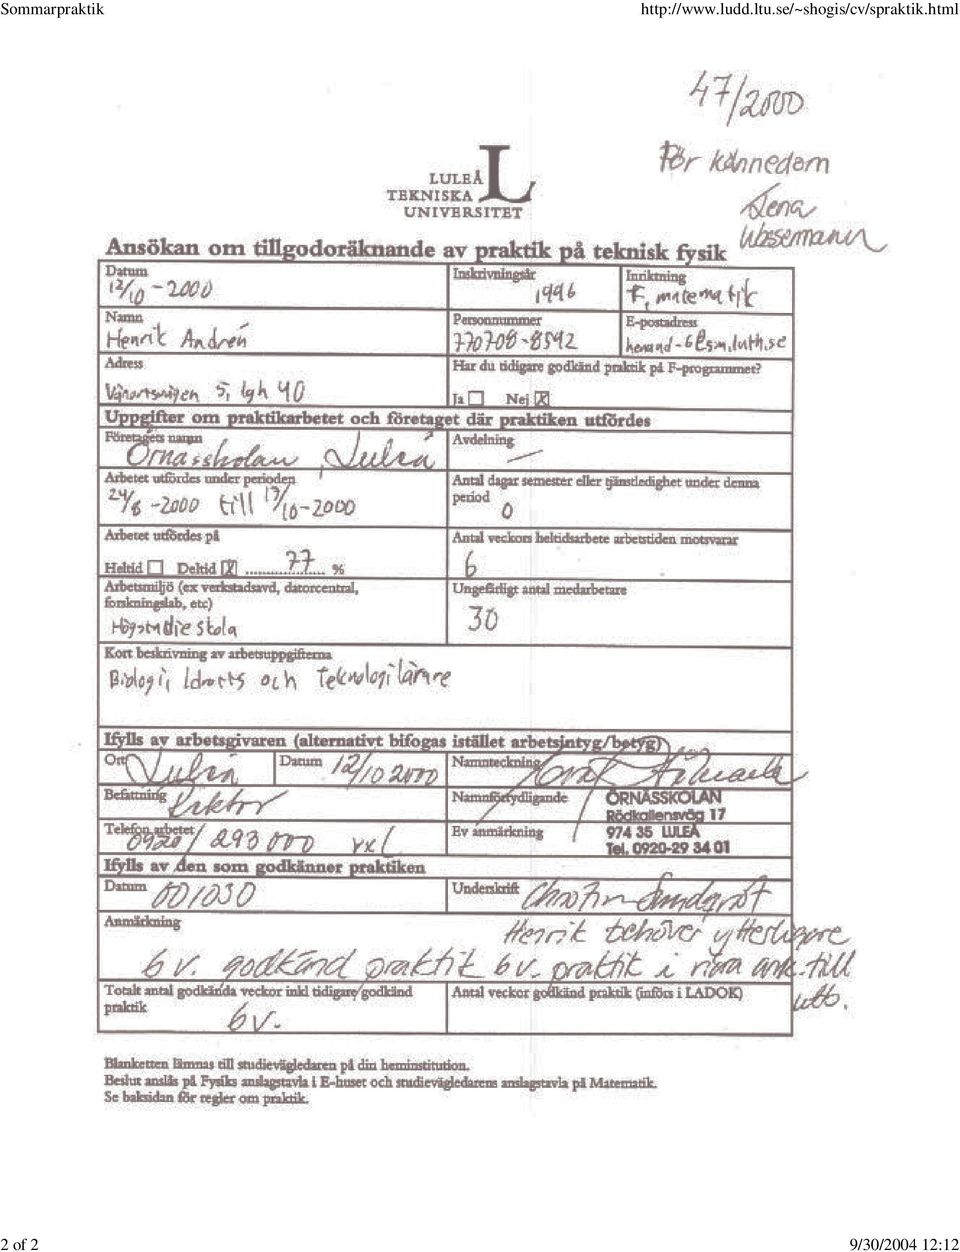 Sommarpraktik http://www.ludd.ltu.se/~shogis/cv/spraktik.html
47/2000
För kännedom
Lena
Wassemann
LULEÅ
TEKNISKA
UNIVERSITET
Ansökan om tillgodoräknande av praktik på teknisk fysik
Datum Inskrivningsår Inriktning
12/10 - 2000 1996 F, matematik
Namn Personnummer E-postadress
Henrik Andrén 770708-8592 henand-6@sm.luth.se
Adress Har du tidigare godkänd praktik på F-programmet?
5, lgh 40 Ja Nej X
Uppgifter om praktikarbetet och företaget där praktiken utfördes
Företagets namn Avdelning
Örnässkolan, Luleå —
Arbetet utfördes under perioden Antal dagar semester eller tjänstledighet under denna
period
24/8 -2000 till 13/10-2000 0
Arbetet utfördes på Antal veckors heltidsarbete arbetstiden motsvarar
Heltid Deltid X 77 % 6
Arbetsmiljö (ex verkstadsavd, datorcentral, Ungefärligt antal medarbetare
forskningslab, etc)
Högstadieskola 30
Kort beskrivning av arbetsuppgifterna
Biologi, Idrotts och Teknologilärare
Ifylls av arbetsgivaren (alternativt bifogas istället arbetsintyg/betyg)
Ort Luleå Datum 12/10 2000 Namnteckning
Befattning Rektor Namnförtydligande ÖRNÄSSKOLAN
Rödkallensväg 17
Telefon arbetet 0920/293000 vxl Ev anmärkning 974 35 LULEÅ
Tel. 0920-29 34 01
Ifylls av den som godkänner praktiken
Datum 001030 Underskrift
Anmärkning Henrik behöver ytterligare
6 v. godkänd praktik 6v. praktik i nära ank. till
utb.
Totalt antal godkända veckor inkl tidigare godkänd Antal veckor godkänd praktik (införs i LADOK)
praktik
6v.
Blanketten lämnas till studievägledaren på din heminstitution.
Beslut anslås på Fysiks anslagstavla i E-huset och studievägledarens anslagstavla på Matematik.
Se baksidan för regler om praktik.
2 of 2 9/30/2004 12:12